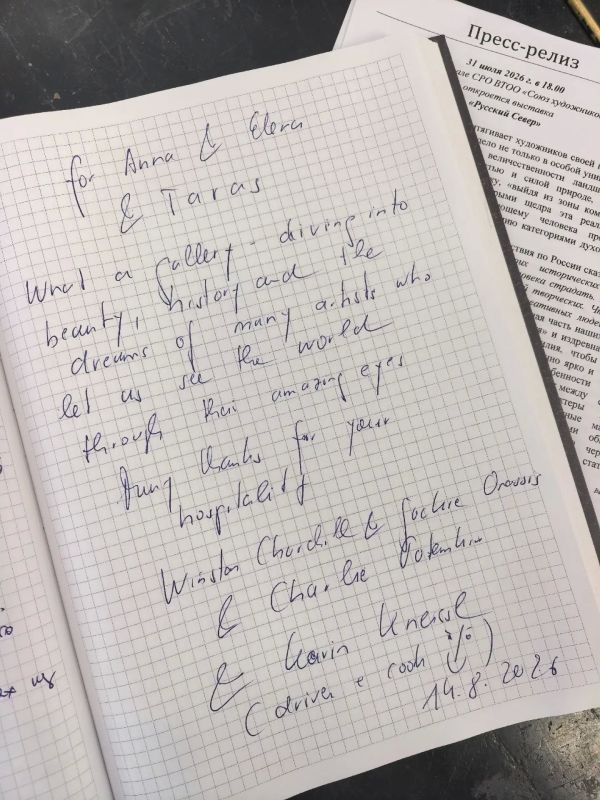 for Anna & Elena
& Taras
What a gallery - diving into
beauty, history and the
dreams of many artists who
let us see the world
through their amazing eyes
thanks for your
hospitality
Winston Churchill & Jackie Onassis
& Charlie Potemkin
& Karin Kneissl
(driver & cook)
14.8.2026
Пресс-релиз
31 июля 2026 г. в 18.00
але СРО ВТОО «Союз художников
откроется выставка
«Русский Север»
тягивает художников своей
не только в особой
величественности
и силой природе,
«выйдя из зоны
щедра эта
человека
категориями
ствия по России
исторических
века страдать.
творческих.
людей
часть наших
и издревна
чтобы
ярко и
между